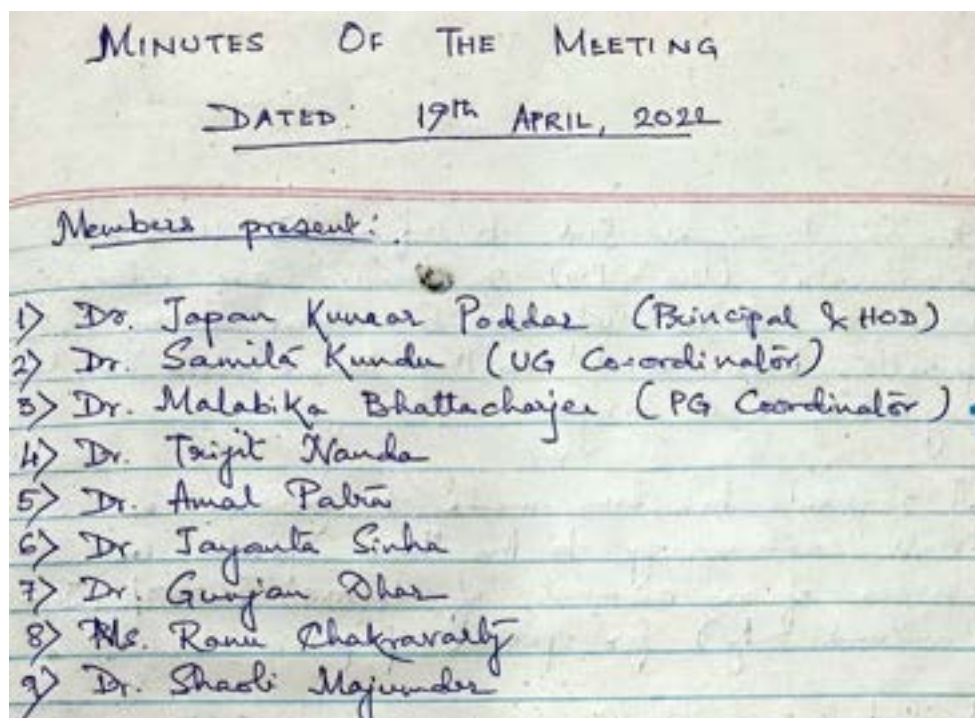 MINUTES OF THE MEETING
DATED: 19th APRIL, 2022
Members present:
1) Dr. Tapan Kumar Poddar (Principal & HOD)
2) Dr. Samita Kundu (UG Co-ordinator)
3) Dr. Malabika Bhattacharjee (PG Coordinator)
4) Dr. Trijit Nanda
5) Dr. Amal Patra
6) Dr. Jayanta Sinha
7) Dr. Gunjan Dhar
8) Ms. Ranu Chakravarty
9) Dr. Shaoli Majumder